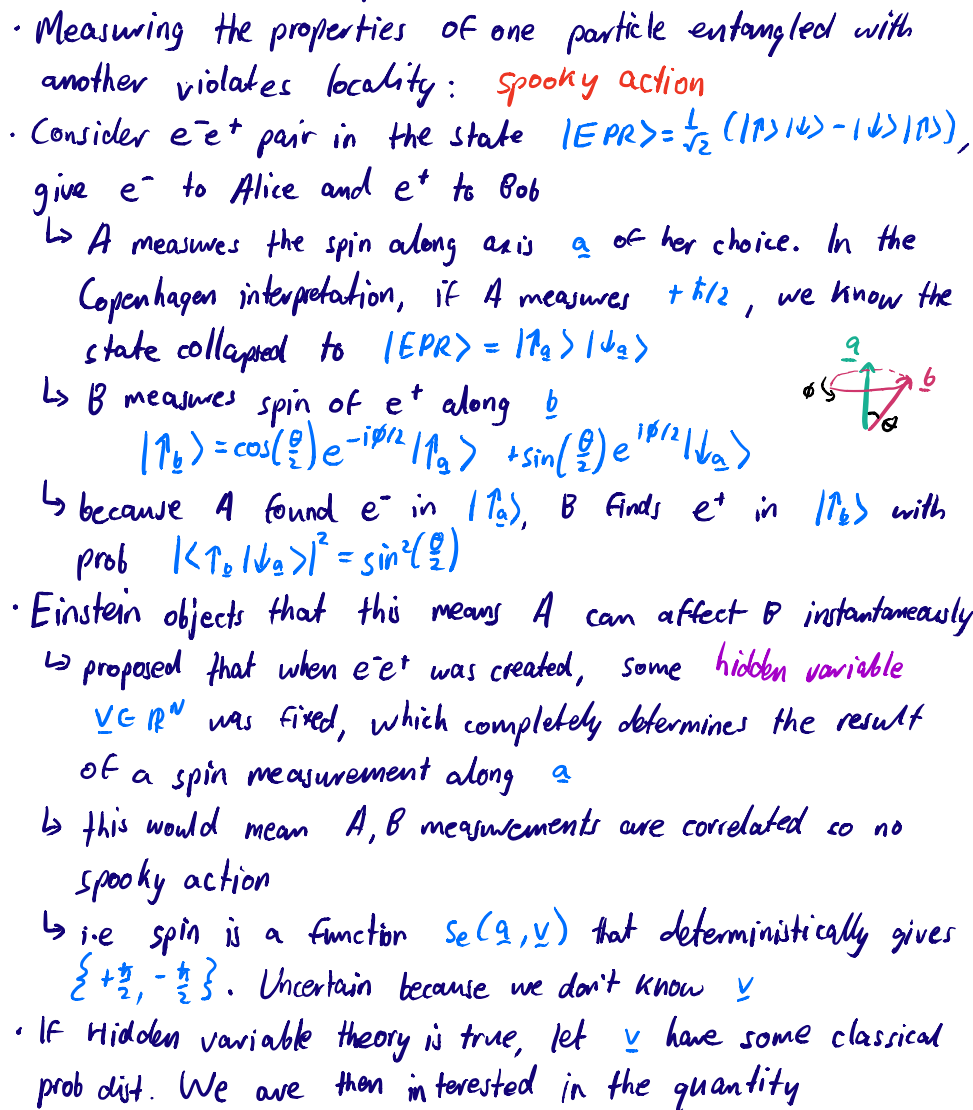 · Measuring the properties of one particle entangled with
another violates locality: spooky action
· Consider e⁻e⁺ pair in the state |EPR> = 1/√2 (|↑>|↓> - |↓>|↑>),
give e⁻ to Alice and e⁺ to Bob
↳ A measures the spin along axis a of her choice. In the
Copenhagen interpretation, if A measures +ħ/2, we know the
state collapsed to |EPR> = |↑a>|↓a>
a
b
φ
θ
↳ B measures spin of e⁺ along b
|↑b> = cos(θ/2) e^{-iφ/2} |↑a> + sin(θ/2) e^{iφ/2} |↓a>
↳ because A found e⁻ in |↑a>, B finds e⁺ in |↑b> with
prob |<↑b|↓a>|² = sin²(θ/2)
· Einstein objects that this means A can affect B instantaneously
↳ proposed that when e⁻e⁺ was created, some hidden variable
v ∈ ℝᴺ was fixed, which completely determines the result
of a spin measurement along a
↳ this would mean A, B measurements are correlated so no
spooky action
↳ i.e spin is a function Se(a, v) that deterministically gives
{+ħ/2, -ħ/2}. Uncertain because we don't know v
· If Hidden variable theory is true, let v have some classical
prob dist. We are then interested in the quantity